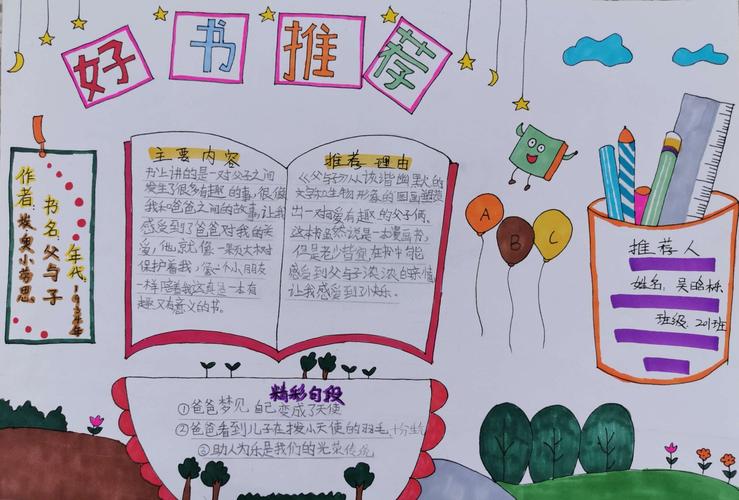 好书推荐
作者:埃·奥·卜劳恩
书名:父与子
年代:1934年
主要内容
书上讲的是一对父子之间
发生了很多有趣的事,很像
我和爸爸之间的故事,让我
感受到了爸爸对我的关
爱,他就像一颗大树对
保护着我,像一个小朋友
一样陪着我这真是一本有
趣又有意义的书。
推荐理由
《父与子》从诙谐幽默的
文字和生物形象的图画塑造
出一对爱有趣的父子俩,
这本书虽然说是一本漫画书,
但是老少皆宜在书中能
感受到父与子浓浓的亲情,
让我感受到了快乐。
A
B
C
推荐人
姓名:吴
班级:201班
精彩句段
①爸爸梦见自己变成了天使
②爸爸看到儿子在拔小天使的羽毛,十分生
③助人为乐是我们的光荣传统